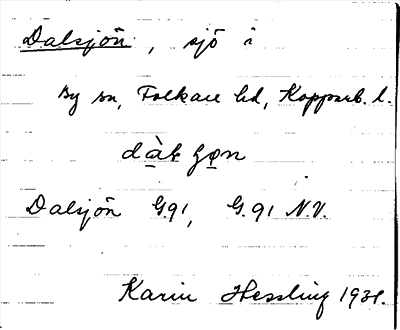 Dalsjön, sjö i
By sn, Folkare hd, Kopparb. l.
Dalsjön G.91, G.91 N.V.
Karin Hessling 1931.